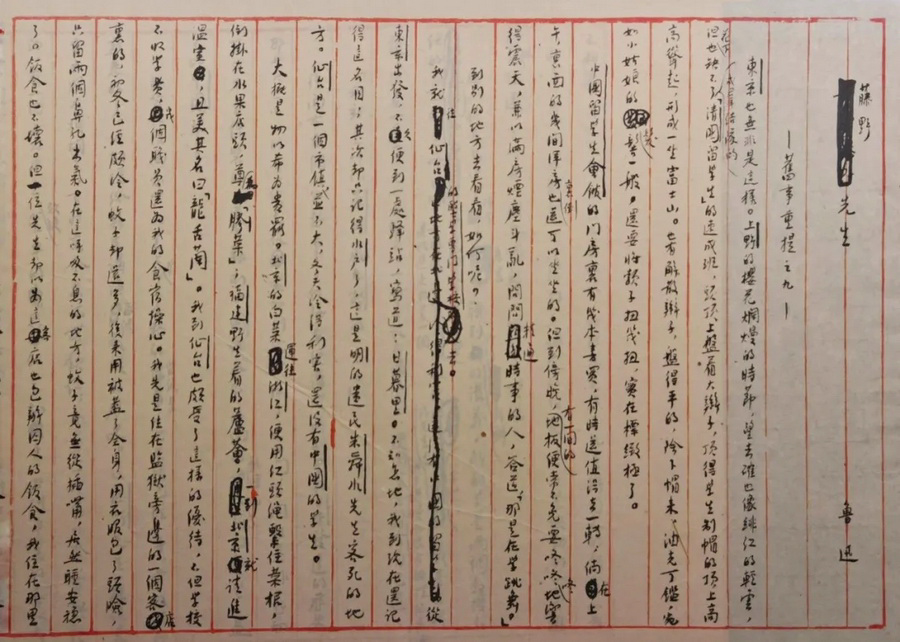 藤野先生 魯迅
—舊事重提之九—
東京也無非是這樣。上野的櫻花爛熳的時節,望去確也像緋紅的輕雲,
但花下也缺不了成羣結隊的「清國留學生」的速成班,頭頂上盤着大辮子,頂得學生制帽的頂上高
高聳起,形成一座富士山。也有解散辮子,盤得平的,除下帽來,油光可鑑,宛
如小姑娘的髮髻一般,還要將頸子扭幾扭,實在標緻極了。
中國留學生會館的門房裏有幾本書買,有時還值得去一轉;倘在上
午,裏面的幾間洋房里倒也還可以坐坐的。但到傍晚,有一間的地板便常不免要咚咚咚地響
得震天,兼以滿房煙塵斗亂;問問精通時事的人,答道,「那是在學跳舞。」
到別的地方去看看,如何呢?
我就往仙台的醫學專門學校去。從
東京出發,不久便到一處驛站,寫道:日暮里。不知怎地,我到現在還記
得這名目。其次却只記得水戶了,這是明的遺民朱舜水先生客死的地
方。仙台是一個市鎮,並不大;冬天冷得利害;還沒有中國的學生。
大概是物以希為貴罷。北京的白菜運往浙江,便用紅頭繩繫住菜根,
倒掛在水果店頭,尊為「膠菜」;福建野生着的蘆薈,一到北京就請進
溫室,且美其名曰「龍舌蘭」。我到仙台也頗受了這樣的優待,不但學校
不收學費,幾個職員還為我的食宿操心。我先是住在監獄旁邊的一個客店
裏的,初冬已經頗冷,蚊子却還多,後來用被蓋了全身,用衣服包了頭臉,
只留兩個鼻孔出氣。在這呼吸不息的地方,蚊子竟無從插嘴,居然睡安穩
了。飯食也不壞。但一位先生却以為這客店也包辦囚人的飯食,我住在那里